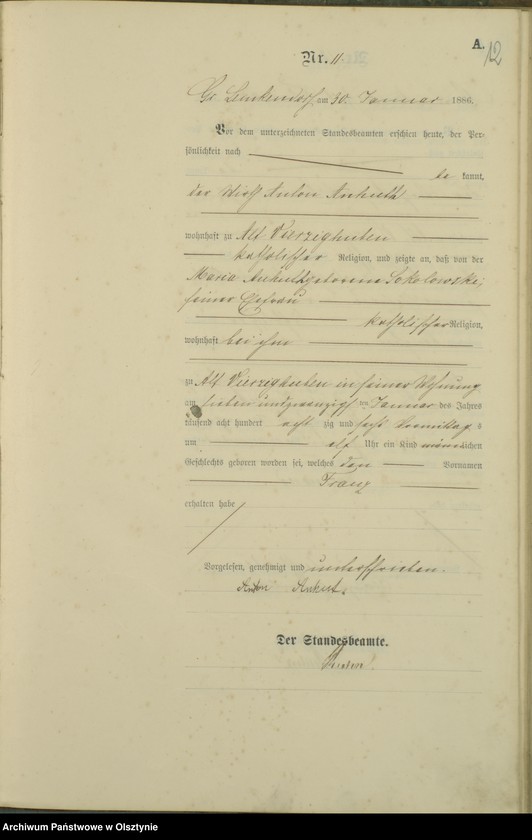 A.
12
Nr. 11.
Gr. Lemkendorf, am 30. Januar 1886.
Vor dem unterzeichneten Standesbeamten erschien heute, der Per-
sönlichkeit nach
be kannt,
der Wirt Anton Ankuth
wohnhaft zu Alt Vierzighuben
katholischer Religion, und zeigte an, daß von der
Maria Ankuth geborene Sokolowski,
seiner Ehefrau
katholischer Religion,
wohnhaft bei ihm
zu Alt Vierzighuben in seiner Wohnung
am sieben und zwanzigsten Januar des Jahres
tausend acht hundert acht zig und sechs Vormittag s
um elf Uhr ein Kind männlichen
Geschlechts geboren worden sei, welches den Vornamen
Franz
erhalten habe
Vorgelesen, genehmigt und unterschrieben.
Anton Ankut.
Der Standesbeamte.
Archiwum Państwowe w Olsztynie